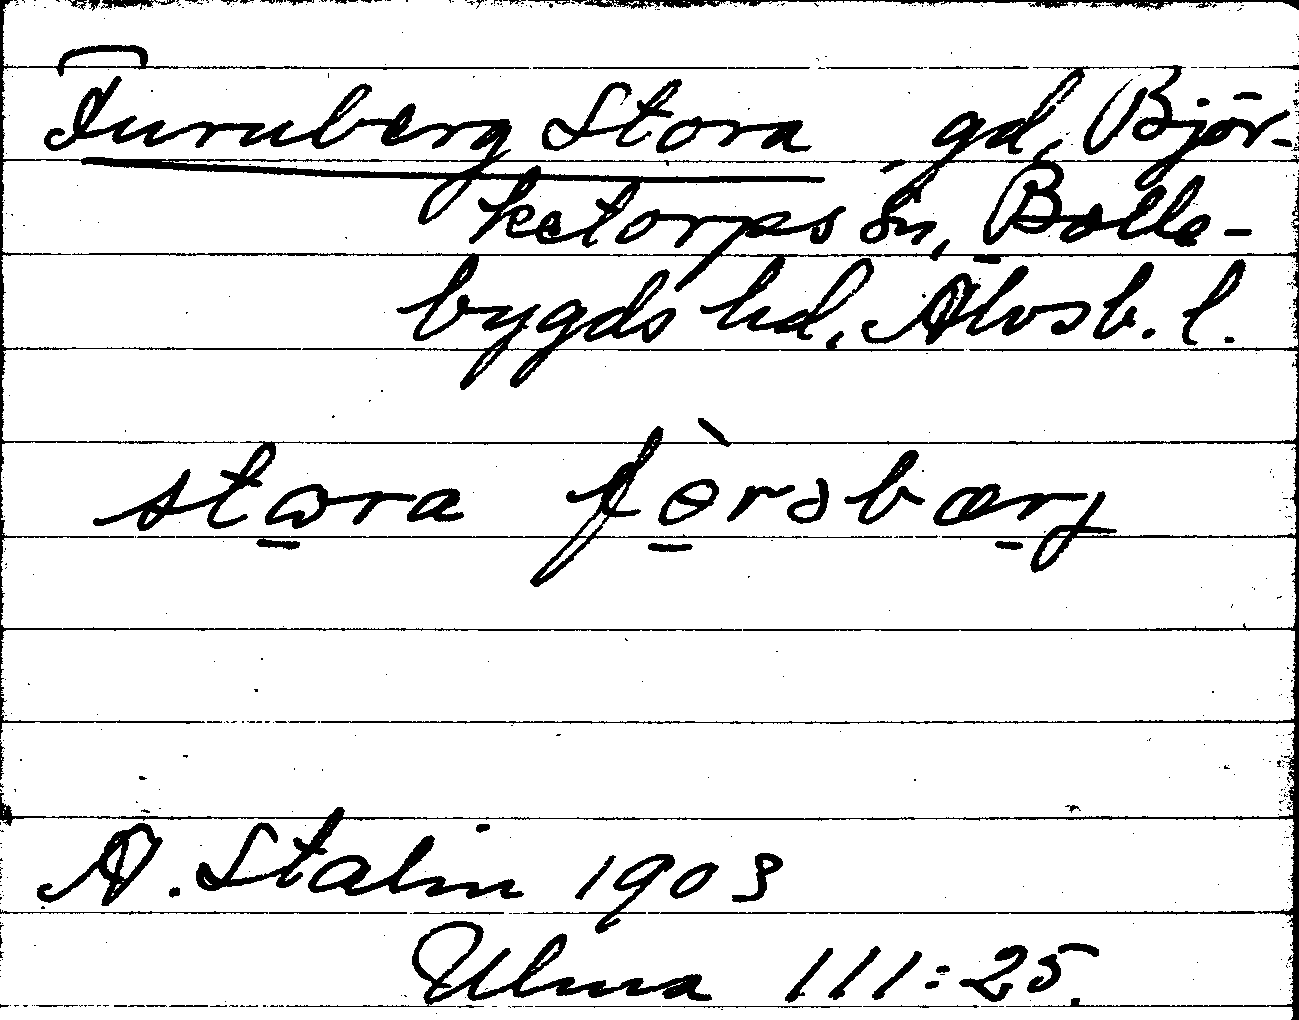 Furuberg Stora, gd, Björ-
ketorps sn, Bolle-
bygds hd, Älvsb. l.
stora fèrsbærj
A. Stalin 1903
Ulma 111:25.